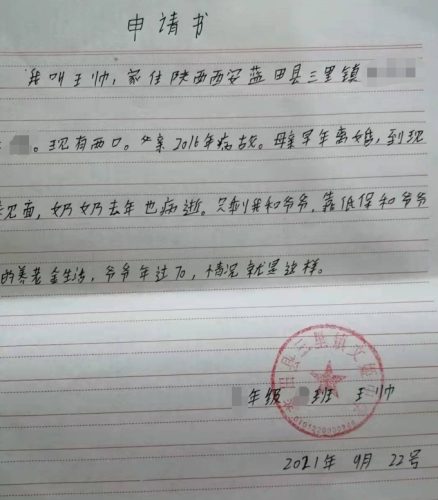 申请书
我叫王帅，家住陕西西安蓝田县三里镇
。现有两口。父亲2016年病故。母亲早年离婚，到现
见面，奶奶去年也病逝。只剩我和爷爷，靠低保和爷爷
的养老金生活，爷爷年过70，情况就是这样。
年级 班 王帅
2021年 9月 22号